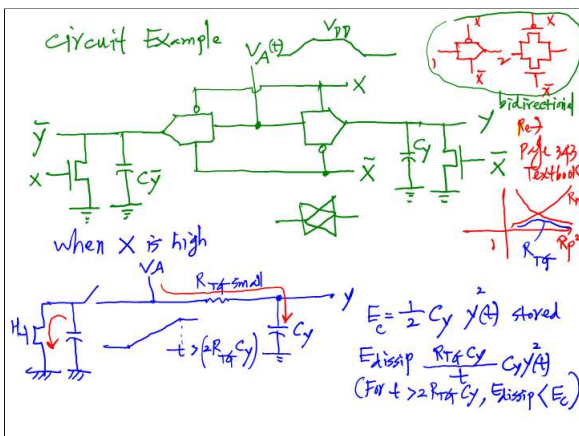 Circuit Example
V_A(t)
V_DD
X
1
2
X̄
X
X̄
bidirectional
Ref
Page 343
Textbook
ȳ
X
X̄
y
X
C_ȳ
C_y
X̄
R_TG
R_p
1
when X is high
V_A
R_TG small
y
C_y
t > (2R_TG C_y)
E_c = 1/2 C_y y²(t) stored
E_dissip R_TG C_y / t C_y y²(t)
(For t > 2 R_TG C_y, E_dissip < E_c)